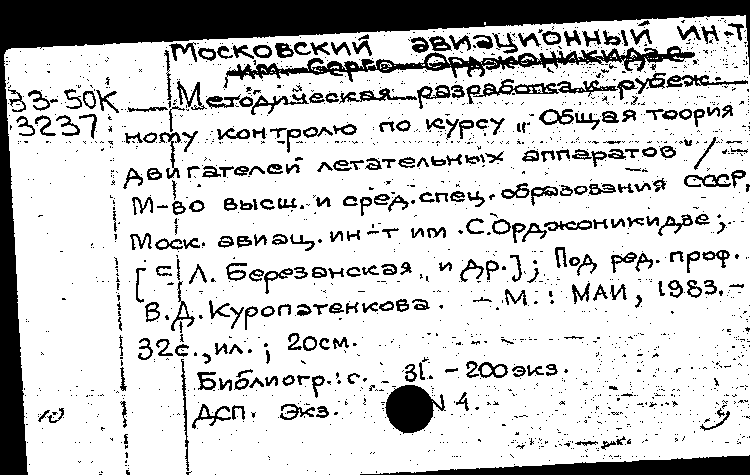 Московский авиационный ин-т
им Серго Орджоникидзе
33-50К Методическая разработка к рубеж-
3237 ному контролю по курсу „Общая теория
двигателей летательных аппаратов"/ —
М-во высш. и сред. спец. образования СССР,
Моск. авиац. ин-т им. С.Орджоникидзе;
[С Л. Березанская и др.]; Под ред. проф.
В.Д.Куропатенкова. — М.: МАИ, 1983.-
32с., ил.; 20см.
Библиогр.: с. 31. - 200 экз.
ДСП. Экз. N 1.